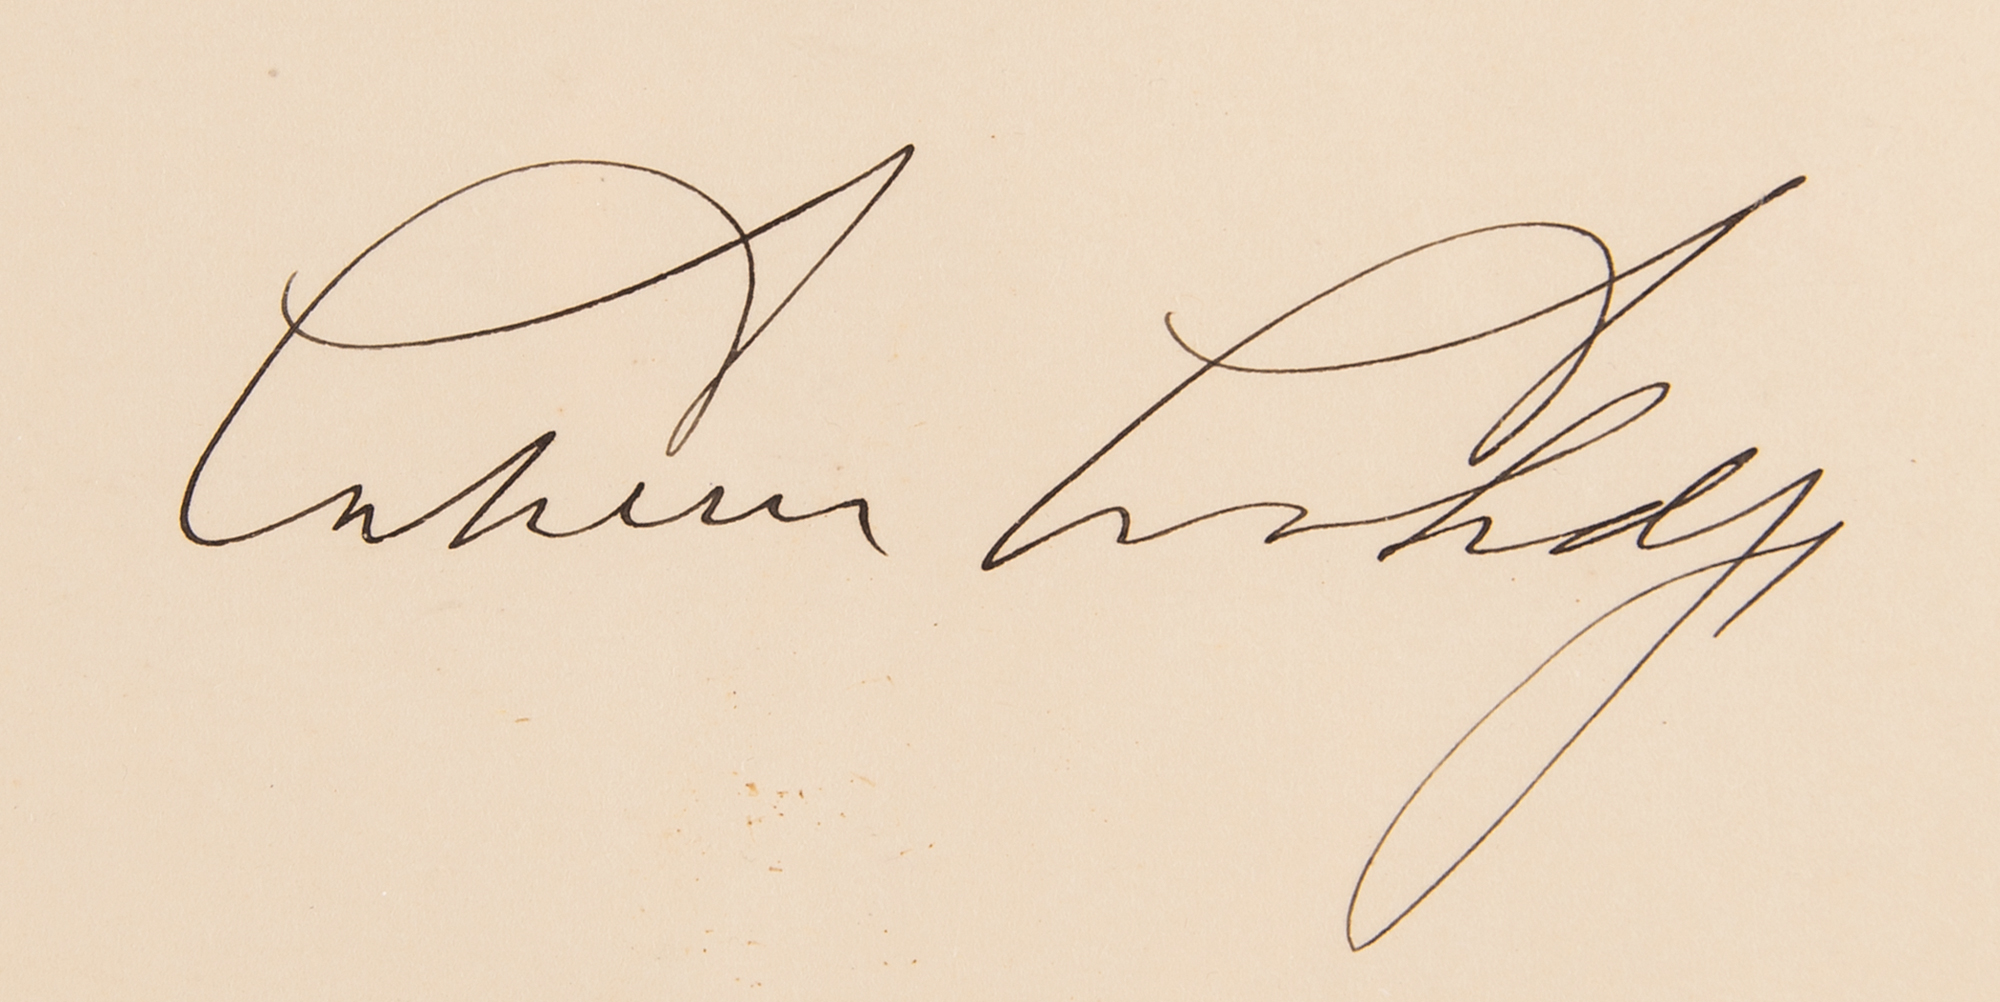 Calvin Coolidge